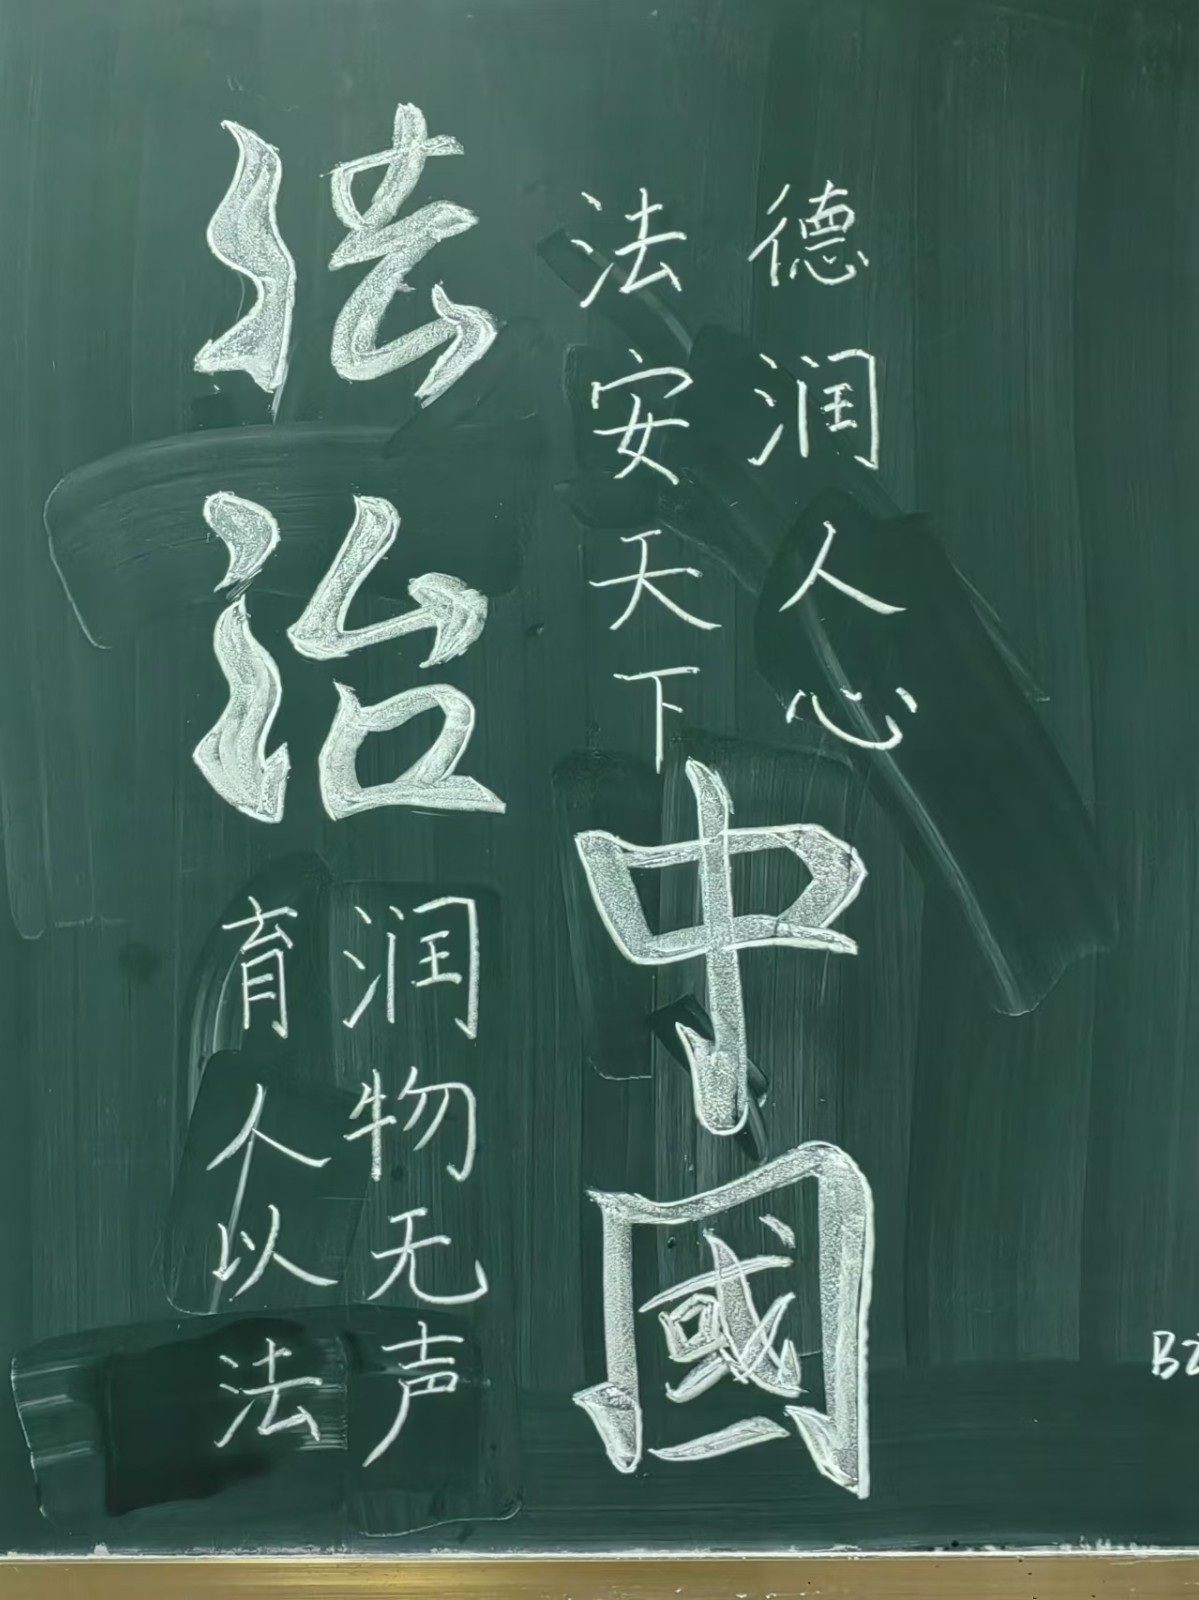 法治
中國
德润人心
法安天下
润物无声
育人以法